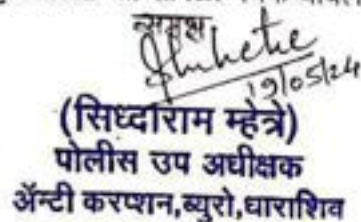 समक्ष
19/05/24
(सिध्दाराम म्हेत्रे)
पोलीस उप अधीक्षक
ॲन्टी करप्शन,ब्युरो,धाराशिव